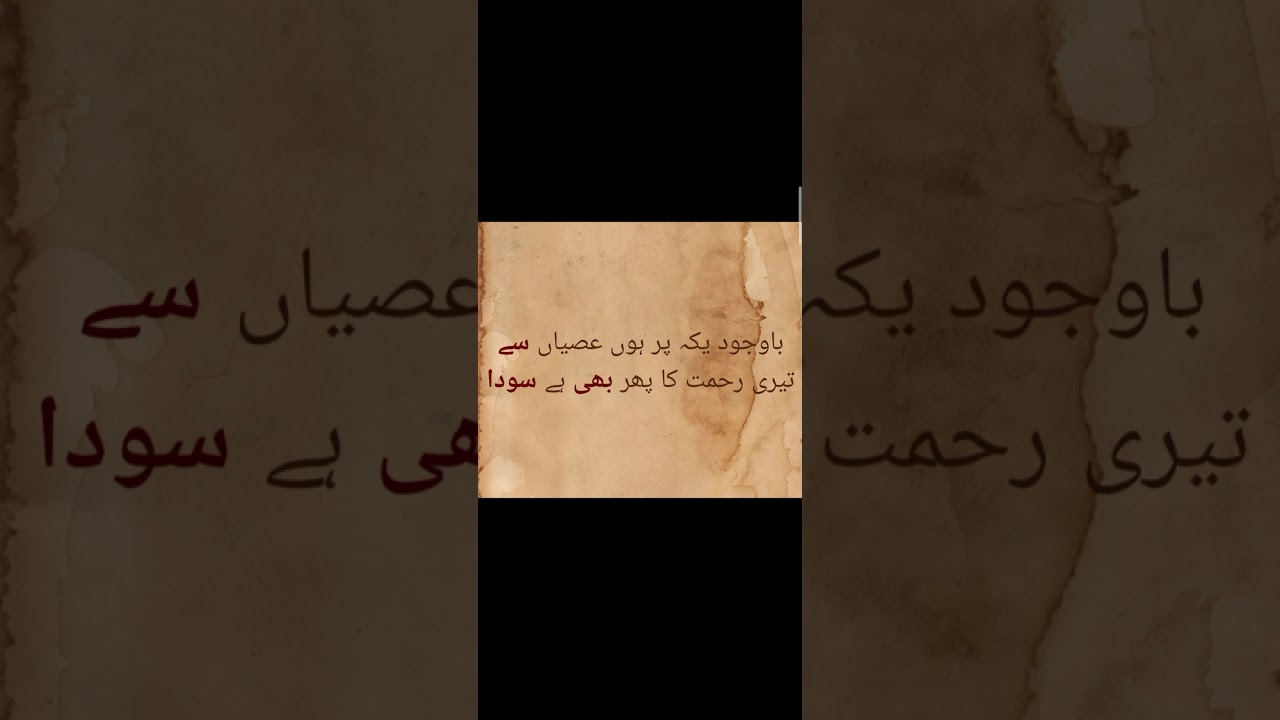 باوجود یکہ پر ہوں عصیاں سے
تیری رحمت کا پھر بھی ہے سودا